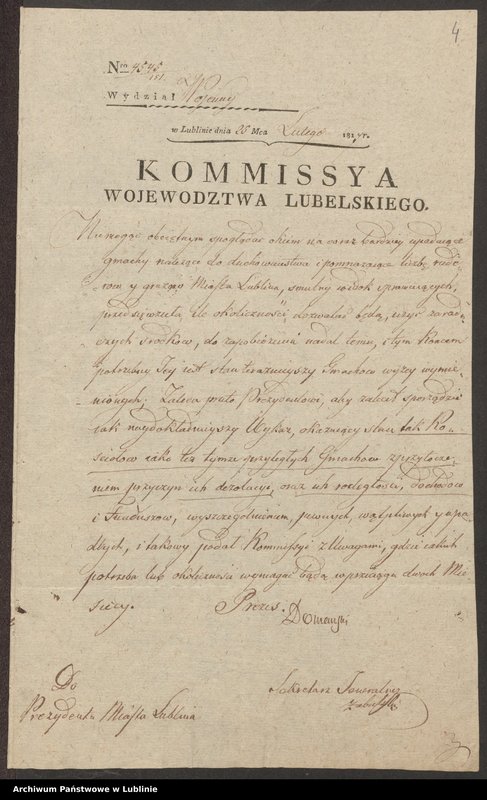 4
Nro 4545
181
Wydział Woienny
w Lublinie dnia 25 Mca Lutego 1817 r.
KOMMISSYA
WOJEWODZTWA LUBELSKIEGO.
Niemogąc oboiętnym spoglądać okiem na coraz bardziey upadaiące
gmachy należące do duchowieństwa i pomnażaiące liczbę ruder
y gruzow Miasta Lublina, smutny widok sprawuiących,
przedsięwzięła ile okoliczności dozwalać będą, użyć zarad
czych srodkow, do zapobieżenia nadal temu, i tym koncem
potrzebny Jey iest stan teraznieyszy Gmachow wyżey wymie
nionych; Zaleca przeto Prezydentowi, aby zaraz sporządził
iak naydokładnieyszy Wykaz, okazuiący stan tak Ko
sciołow iako też tymże przyległych Gmachow z
niem przyczyn ich dezolacyi, oraz ich rozległości, dochodow
i Funduszow, wyszczegolnieniem pewnych, wątpliwych y upa
dłych, i takowy podał Kommissyi z Uwagami, gdzie iakich
potrzeba lub okoliczności wymagać będą w przeciągu dwoch Mie
sięcy.
Prezes.
Domański
Do
Prezydenta Miasta Lublina
Sekretarz Jeneralny
Archiwum Państwowe w Lublinie